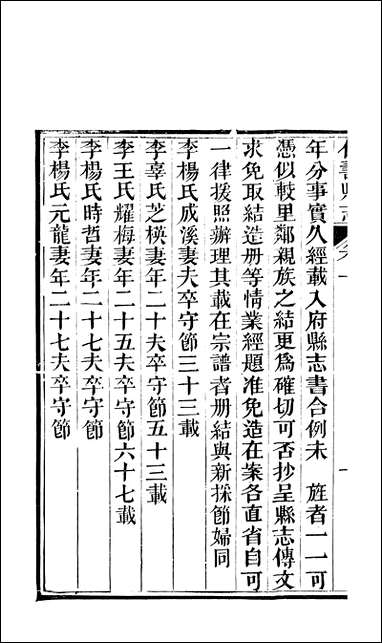 年分事實久經載入府縣志書合例未 旌者一一可
憑似較里鄰親族之結更為確切可否抄呈縣志傳文
求免取結造册等情業經題准免造在案各直省自可
一律援照辦理其載在宗譜者册結與新採節婦同
李楊氏成溪妻夫卒守節三十三載
李辜氏芝楧妻年二十夫卒守節五十三載
李王氏耀梅妻年二十五夫卒守節六十七載
李楊氏時哲妻年二十七夫卒守節
李楊氏元龍妻年二十七夫卒守節